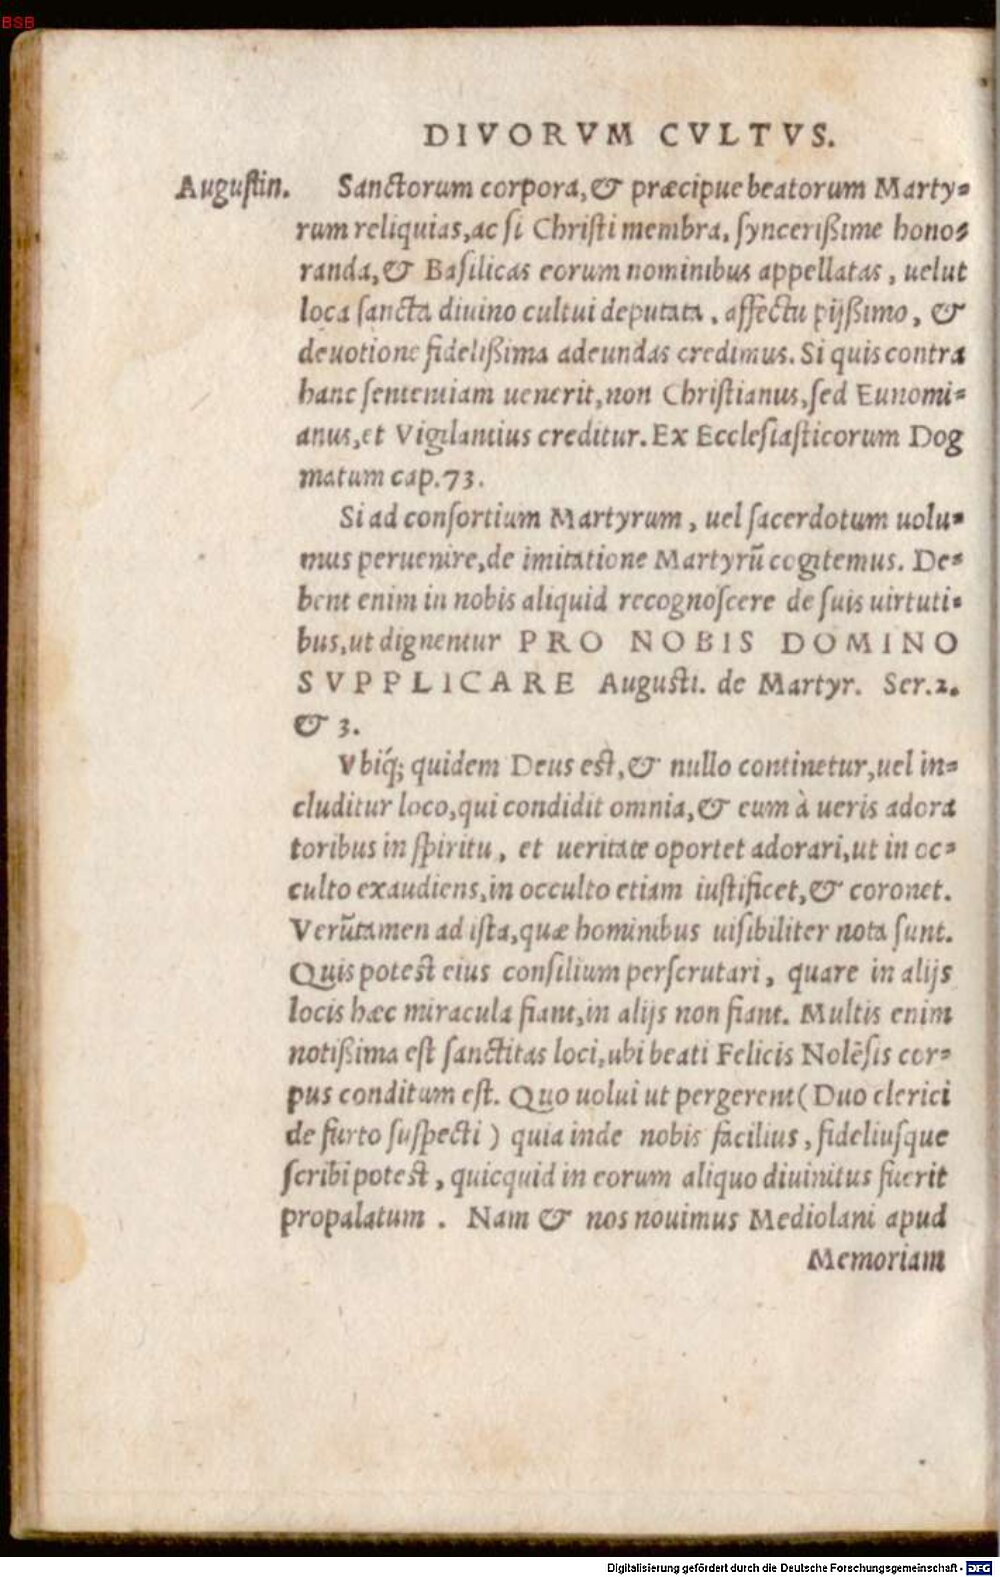 BSB
DIVORVM CVLTVS.
Augustin. Sanctorum corpora, & præcipue beatorum Marty-
rum reliquias, ac si Christi membra, syncerißime hono-
randa, & Basilicas eorum nominibus appellatas, uelut
loca sancta diuino cultui deputata, affectu pijßimo, &
deuotione fidelißima adeundas credimus. Si quis contra
hanc sententiam uenerit, non Christianus, sed Eunomi-
anus, et Vigilantius creditur. Ex Ecclesiasticorum Dog
matum cap. 73.
Si ad consortium Martyrum, uel sacerdotum uolu-
mus peruenire, de imitatione Martyrū cogitemus. De-
bent enim in nobis aliquid recognoscere de suis uirtuti-
bus, ut dignentur PRO NOBIS DOMINO
SVPPLICARE Augusti. de Martyr. Ser. 2.
& 3.
Vbiq́; quidem Deus est, & nullo continetur, uel in-
cluditur loco, qui condidit omnia, & eum à ueris adora
toribus in spiritu, et ueritate oportet adorari, ut in oc-
culto exaudiens, in occulto etiam iustificet, & coronet.
Verūtamen ad ista, quæ hominibus uisibiliter nota sunt.
Quis potest eius consilium perscrutari, quare in alijs
locis hæc miracula fiant, in alijs non fiant. Multis enim
notißima est sanctitas loci, ubi beati Felicis Nolēsis cor-
pus conditum est. Quo uolui ut pergerent (Duo clerici
de furto suspecti) quia inde nobis facilius, fideliusque
scribi potest, quicquid in eorum aliquo diuinitus fuerit
propalatum. Nam & nos nouimus Mediolani apud
Memoriam
Digitalisierung gefördert durch die Deutsche Forschungsgemeinschaft - DFG